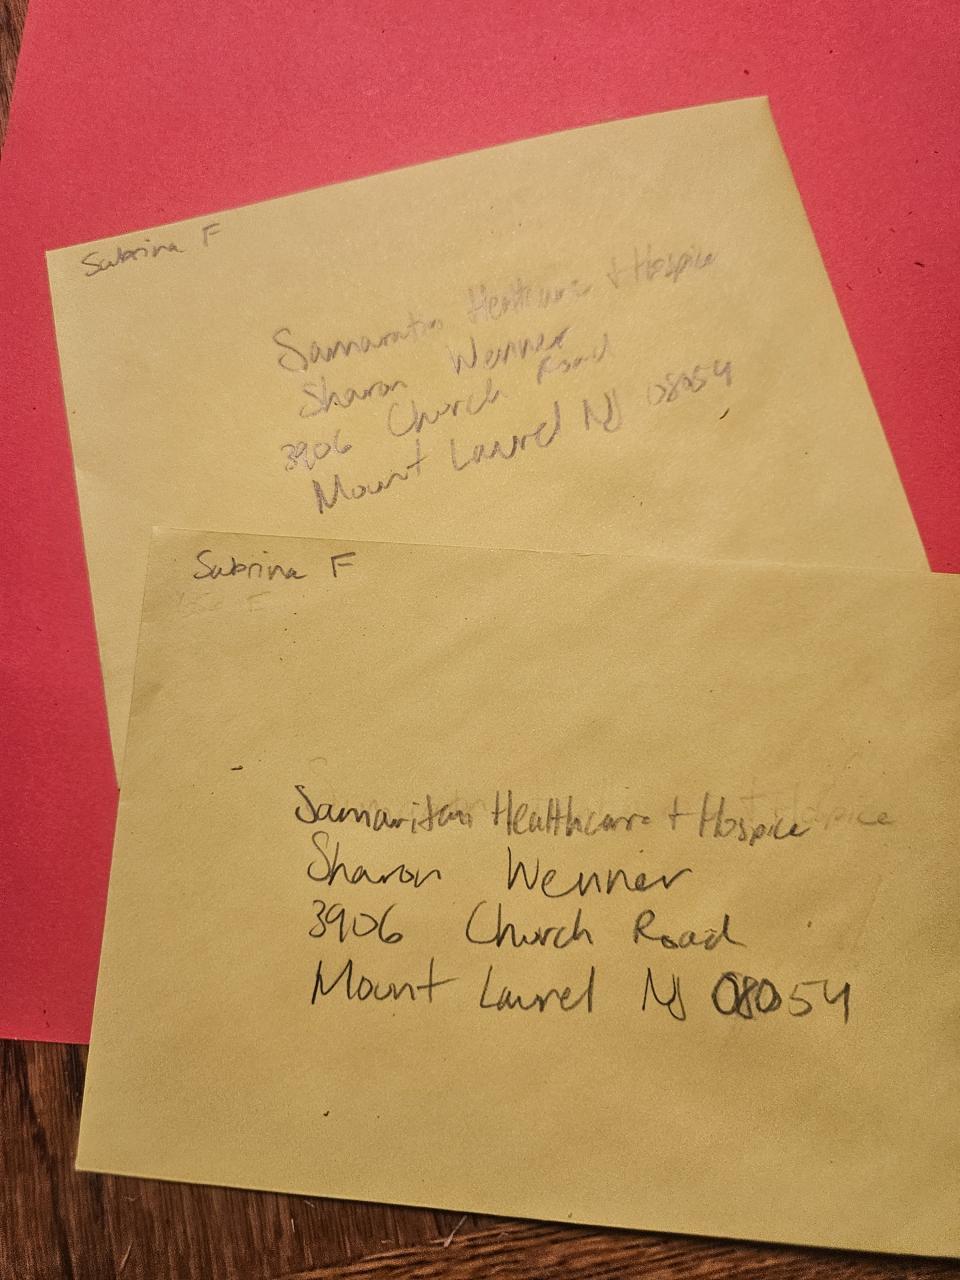 Sabrina F
Samaratin Healthcare + Hospice
Sharon Wenner
3906 Church Road
Mount Laurel NJ 08054
Sabrina F
Samaritan Healthcare + Hospice
Sharon Wenner
3906 Church Road
Mount Laurel NJ 08054